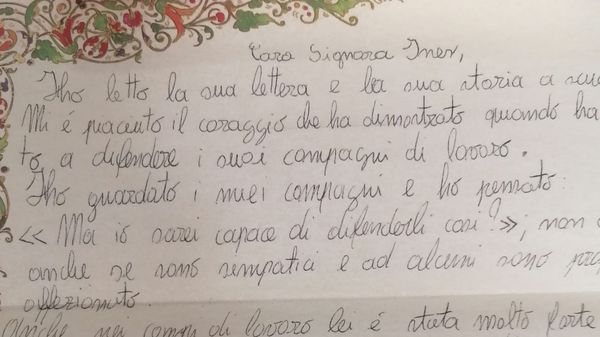 Cara Signora Ines,
Ho letto la sua lettera e la sua storia a scuo
Mi é piaciuto il coraggio che ha dimostrato quando ha
to a difendere i suoi compagni di lavoro.
Ho guardato i miei compagni e ho pensato:
«Ma io sarei capace di difenderli così?»; non
anche se sono simpatici e ad alcuni sono prop
affezionato.
anche nei campi di lavoro lei é stata molto forte